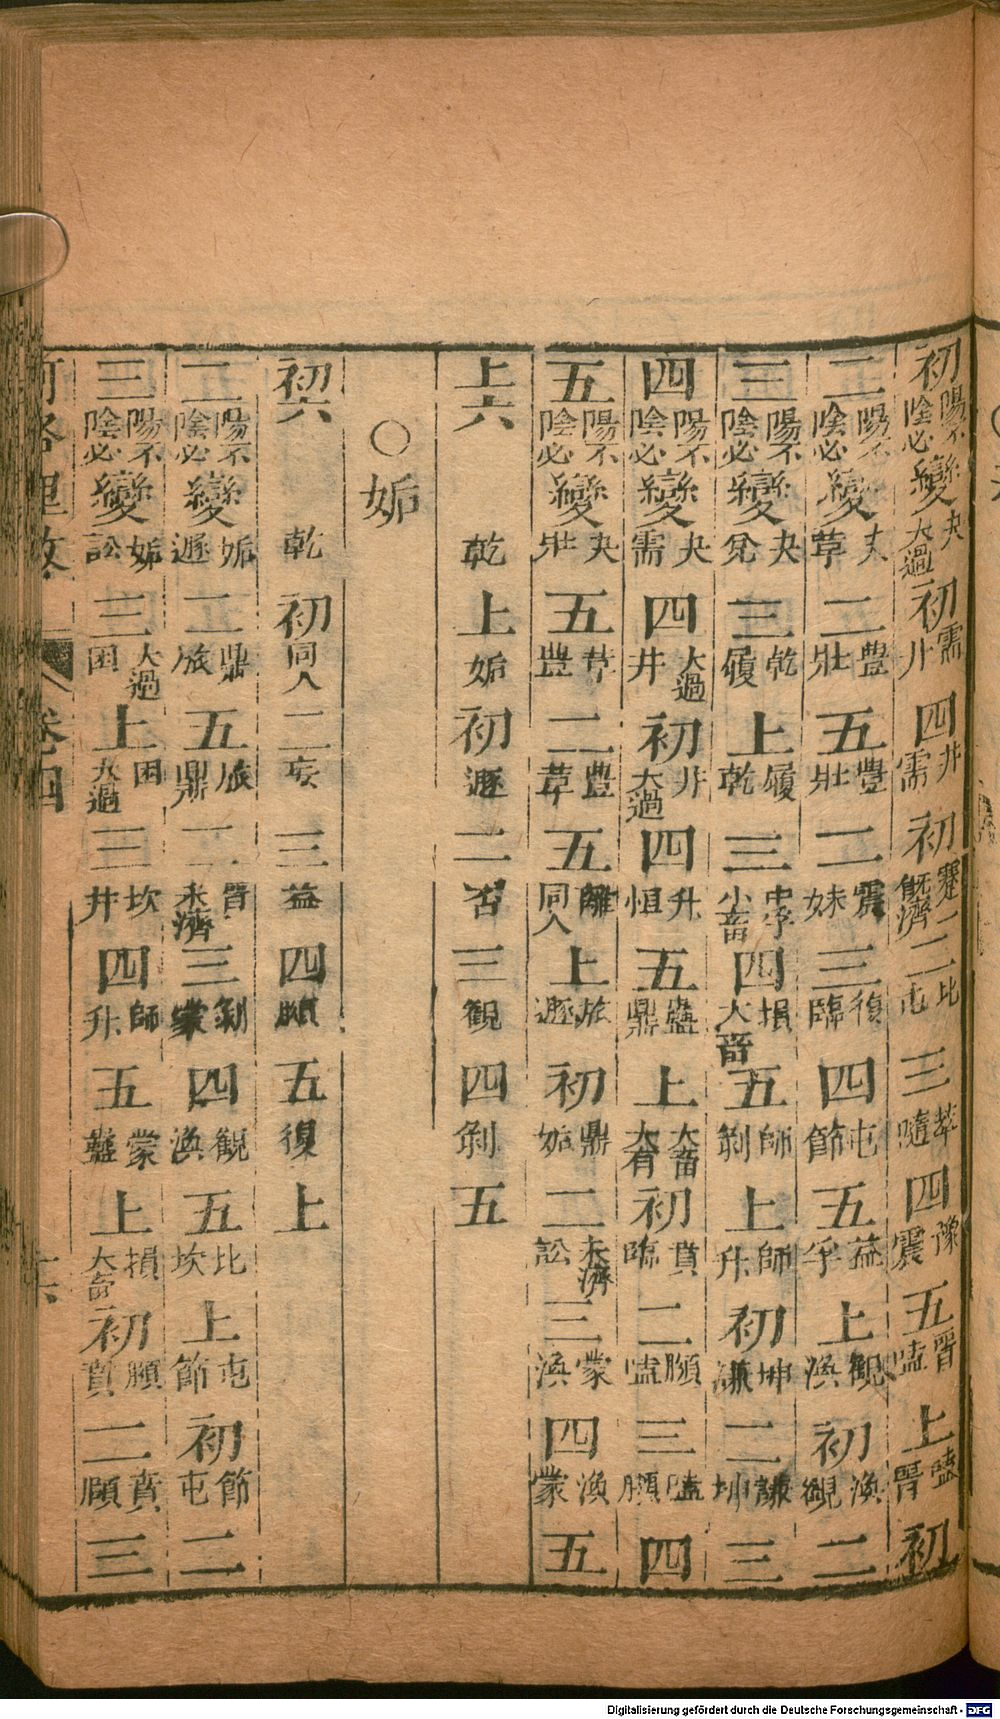 初陽不陰必變夬大過初需井四井需初蹇既濟二比屯三萃隨四豫震五晉噬上噬晉初
二陽不陰必變夬革二豐壯五豐壯二震妹三復臨四屯節五益孚上觀渙初渙觀二
三陽不陰必變夬兌三乾履上履乾三中孚小畜四損大畜五師剝上師升初坤謙二謙坤三
四陽不陰必變夬需四大過井初井大過四升恒五蠱鼎上大畜大有初賁臨二頤噬三噬頤四
五陽不陰必變夬壯五革豐二豐革五離同人上旅遯初鼎姤二未濟訟三蒙渙四渙蒙五
上六乾上姤初遯二否三觀四剝五
○姤
初六乾初同人二妄三益四頤五復上
二陽不陰必變姤遯二鼎旅五旅鼎二晉未濟三剝蒙四觀渙五比坎上屯節初節屯二
三陽不陰必變姤訟三大過困上困大過三坎井四師升五蒙蠱上損大畜初頤賁二賁頤三
河洛理數 卷四
Digitalisierung gefördert durch die Deutsche Forschungsgemeinschaft - DFG